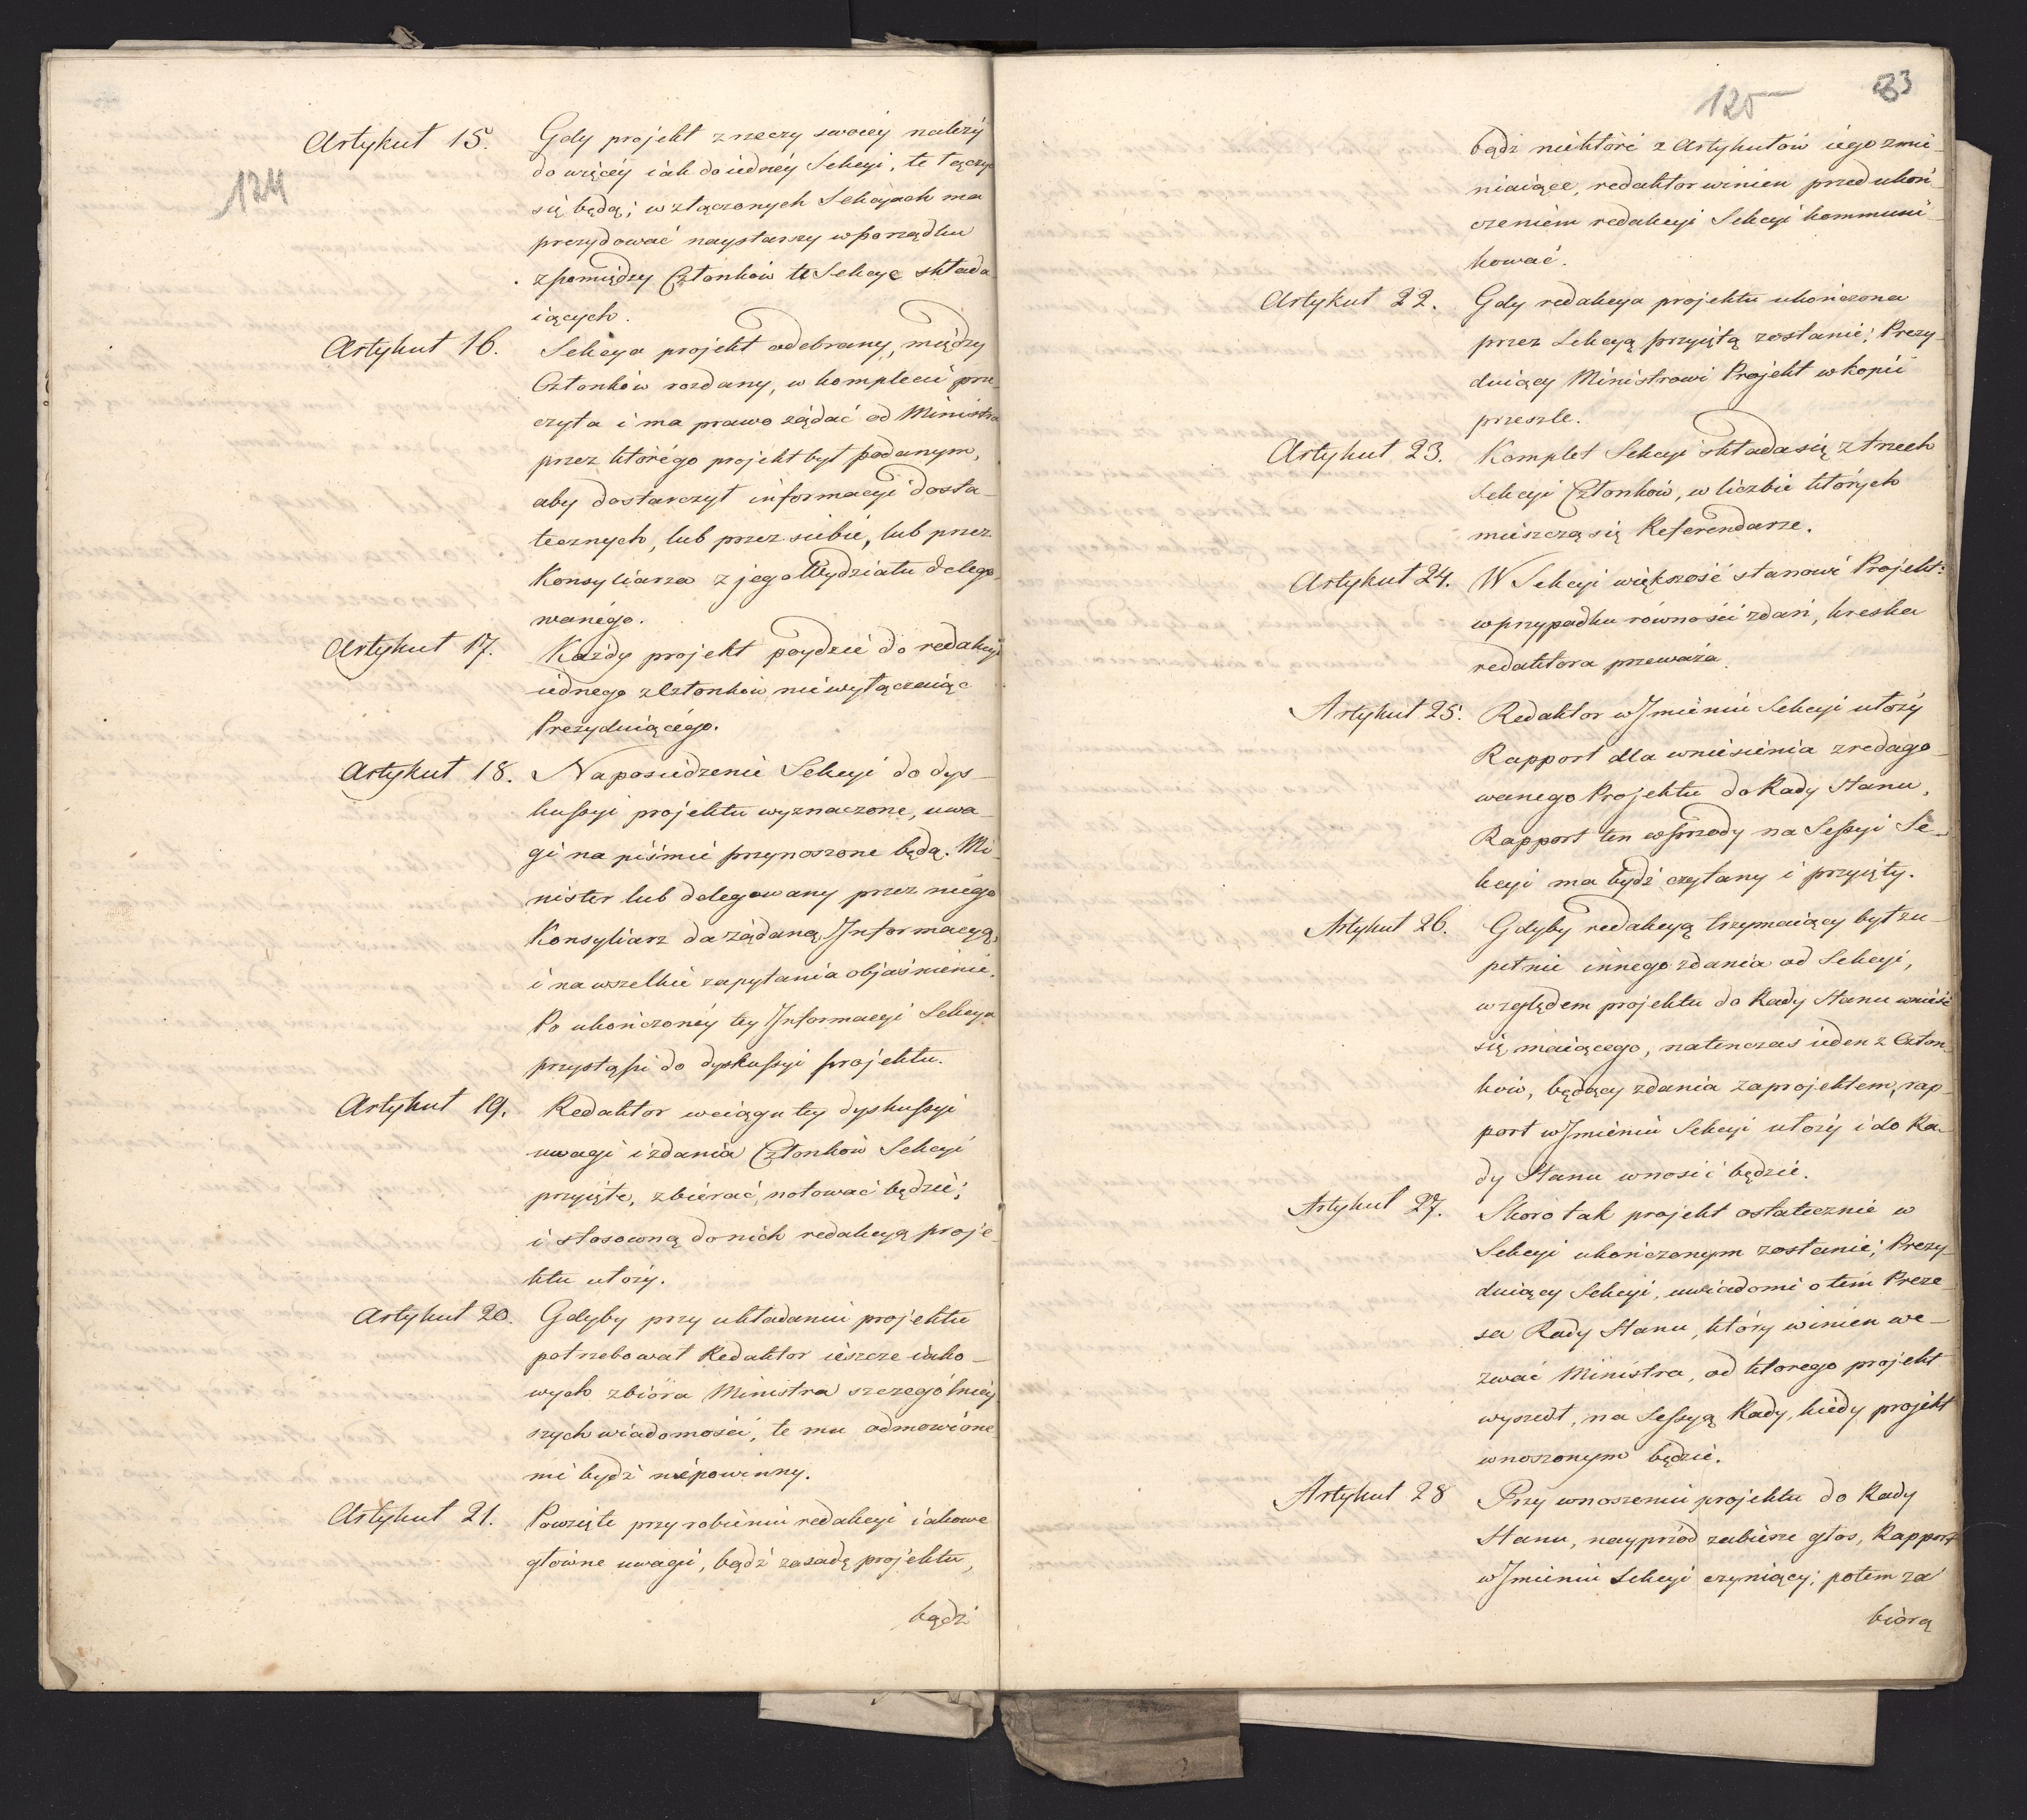 124
Artykuł 15.
Gdy projekt z rzeczy swoiey należy
do więcéy iak do iednéy Sekcyi, te łączyć
się będą; w złączonych Sekcyach ma
prezydować naystarszy w porządku
z pomiędzy Członków te Sekcye składa
iących.
Artykuł 16.
Sekcya projekt odebrany, między
Członków rozdany, w komplecie prze-
czyta i ma prawo żądać od Ministra
przez którégo projekt był podanym,
aby dostarczył informacyi dosta-
tecznych, lub przez siebie, lub przez
Konsyliarza z jego Wydziału delego-
wanégo.
Artykuł 17.
Każdy projekt poydzie do redakcyi
iednego z Członków nie wyłączaiąc
Prezyduiącégo.
Artykuł 18.
Na posiedzenie Sekcyi do dys-
kussyi projektu wyznaczone, uwa-
gi na piśmie przynoszone będą. Mi-
nister lub delegowany przez niégo
Konsyliarz da żądaną Informacyą,
i na wszelkie zapytania objaśnienie.
Po ukończonéy tey Informacyi Sekcya
przystąpi do dyskussyi projektu.
Artykuł 19.
Redaktor w ciągu tey dyskussyi
uwagi i zdania Członków Sekcyi
przyięte, zbiérać, notować będzie;
i stosowną do nich redakcyą proje-
ktu ułoży.
Artykuł 20.
Gdyby przy układaniu projektu
potrzebował Redaktor ieszcze iako-
wych zbióra Ministra szczególniey
szych wiadomości, te mu odmówione
mi bydź niepowinny.
Artykuł 21.
Powzięte przy robieniu redakcyi iakowe
główne uwagi, bądź zasadę projektu,
bądź
125
83
bądź niektóre z Artykułów iego zmie-
niaiące, redaktor winien przed ukoń-
czeniem redakcyi Sekcyi kommuni-
kować.
Artykuł 22.
Gdy redakcya projektu ukończona
przez Sekcyą przyiętą zostanie; Prezy-
duiący Ministrowi Projekt w kopii
prześle.
Artykuł 23.
Komplet Sekcyi składa się z trzech
Sekcyi Członków, w liczbie których
mieszczą się Referendarze.
Artykuł 24.
W Sekcyi większość stanowi Projekt:
w przypadku równości zdań, kreska
redaktora przeważa.
Artykuł 25.
Redaktor w Jmieniu Sekcyi ułoży
Rapport dla wniesienia zredago-
wanego Projektu do Rady Stanu,
Rapport ten wprzody na Sessyi Se-
kcyi ma bydź czytany i przyięty.
Artykuł 26.
Gdyby redakcyą trzymaiący był zu-
pełnie innego zdania od Sekcyi,
względem projektu do Rady Stanu wnieść
się maiącego, natenczas ieden z Człon-
ków, będący zdania za projektem, rap-
port w Jmieniu Sekcyi ułoży i do Ra-
dy Stanu wnosić będzie.
Artykuł 27.
Skoro tak projekt ostatecznie w
Sekcyi ukończonym zostanie; Prezy-
duiący Sekcyi, uwiadomi o tem Preze-
sa Rady Stanu, który winien we-
zwać Ministra, od którego projekt
wyszedł, na Sessyą Rady, kiedy projekt
wnoszonym będzie.
Artykuł 28
Przy wnoszeniu projektu do Rady
Stanu, nayprzód zabierze głos, Rapport
w Jmieniu Sekcyi czyniący; potem za
biorą